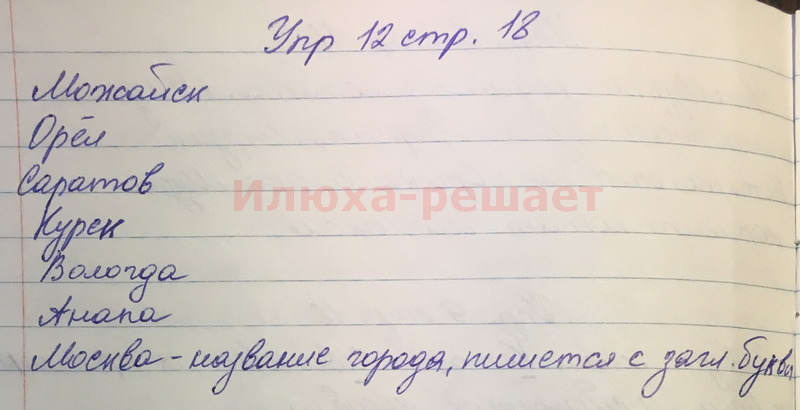 Упр 12 стр. 18
Можайск
Орёл
Саратов
Илюха-решает
Курск
Вологда
Анапа
Москва - название города, пишется с загл. буквы